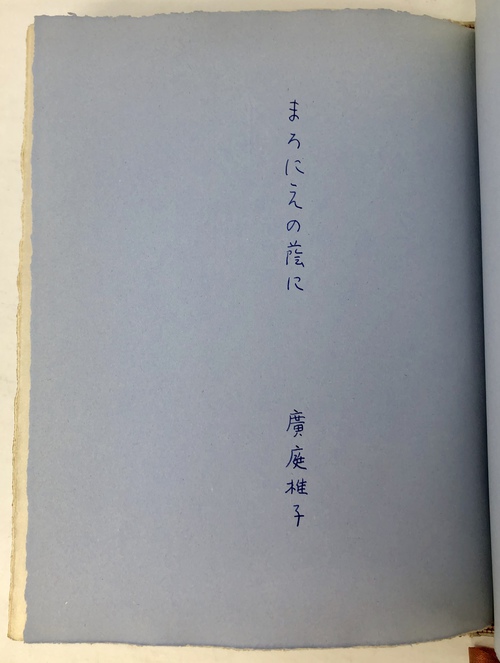 まろにえの蔭に
廣庭椎子